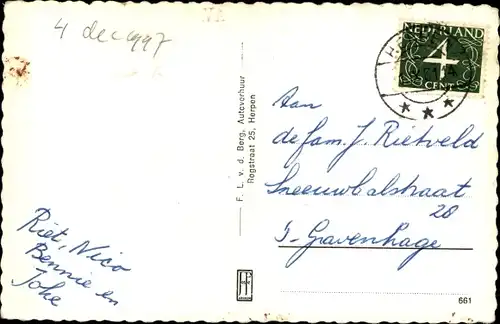 4 dec 1997
NEDERLAND
4
CENT
F. L. v. d. Berg, Autoverhuur
Rogstraat 25, Herpen
Aan
de fam. J. Rietveld
Sneeuwbalstraat
28
's-Gravenhage
Riet, Nico
Bennie en
Joke
661